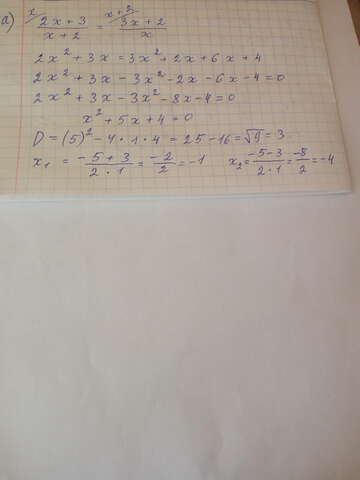 а) x/ (2x+3)/(x+2) = x+2/ (3x+2)/x
2x² + 3x = 3x² + 2x + 6x + 4
2x² + 3x - 3x² - 2x - 6x - 4 = 0
2x² + 3x - 3x² - 8x - 4 = 0
x² + 5x + 4 = 0
D = (5)² - 4 · 1 · 4 = 25 - 16 = √9 = 3
x₁ = (-5+3)/(2·1) = (-2)/2 = -1 x₂ = (-5-3)/(2·1) = (-8)/2 = -4